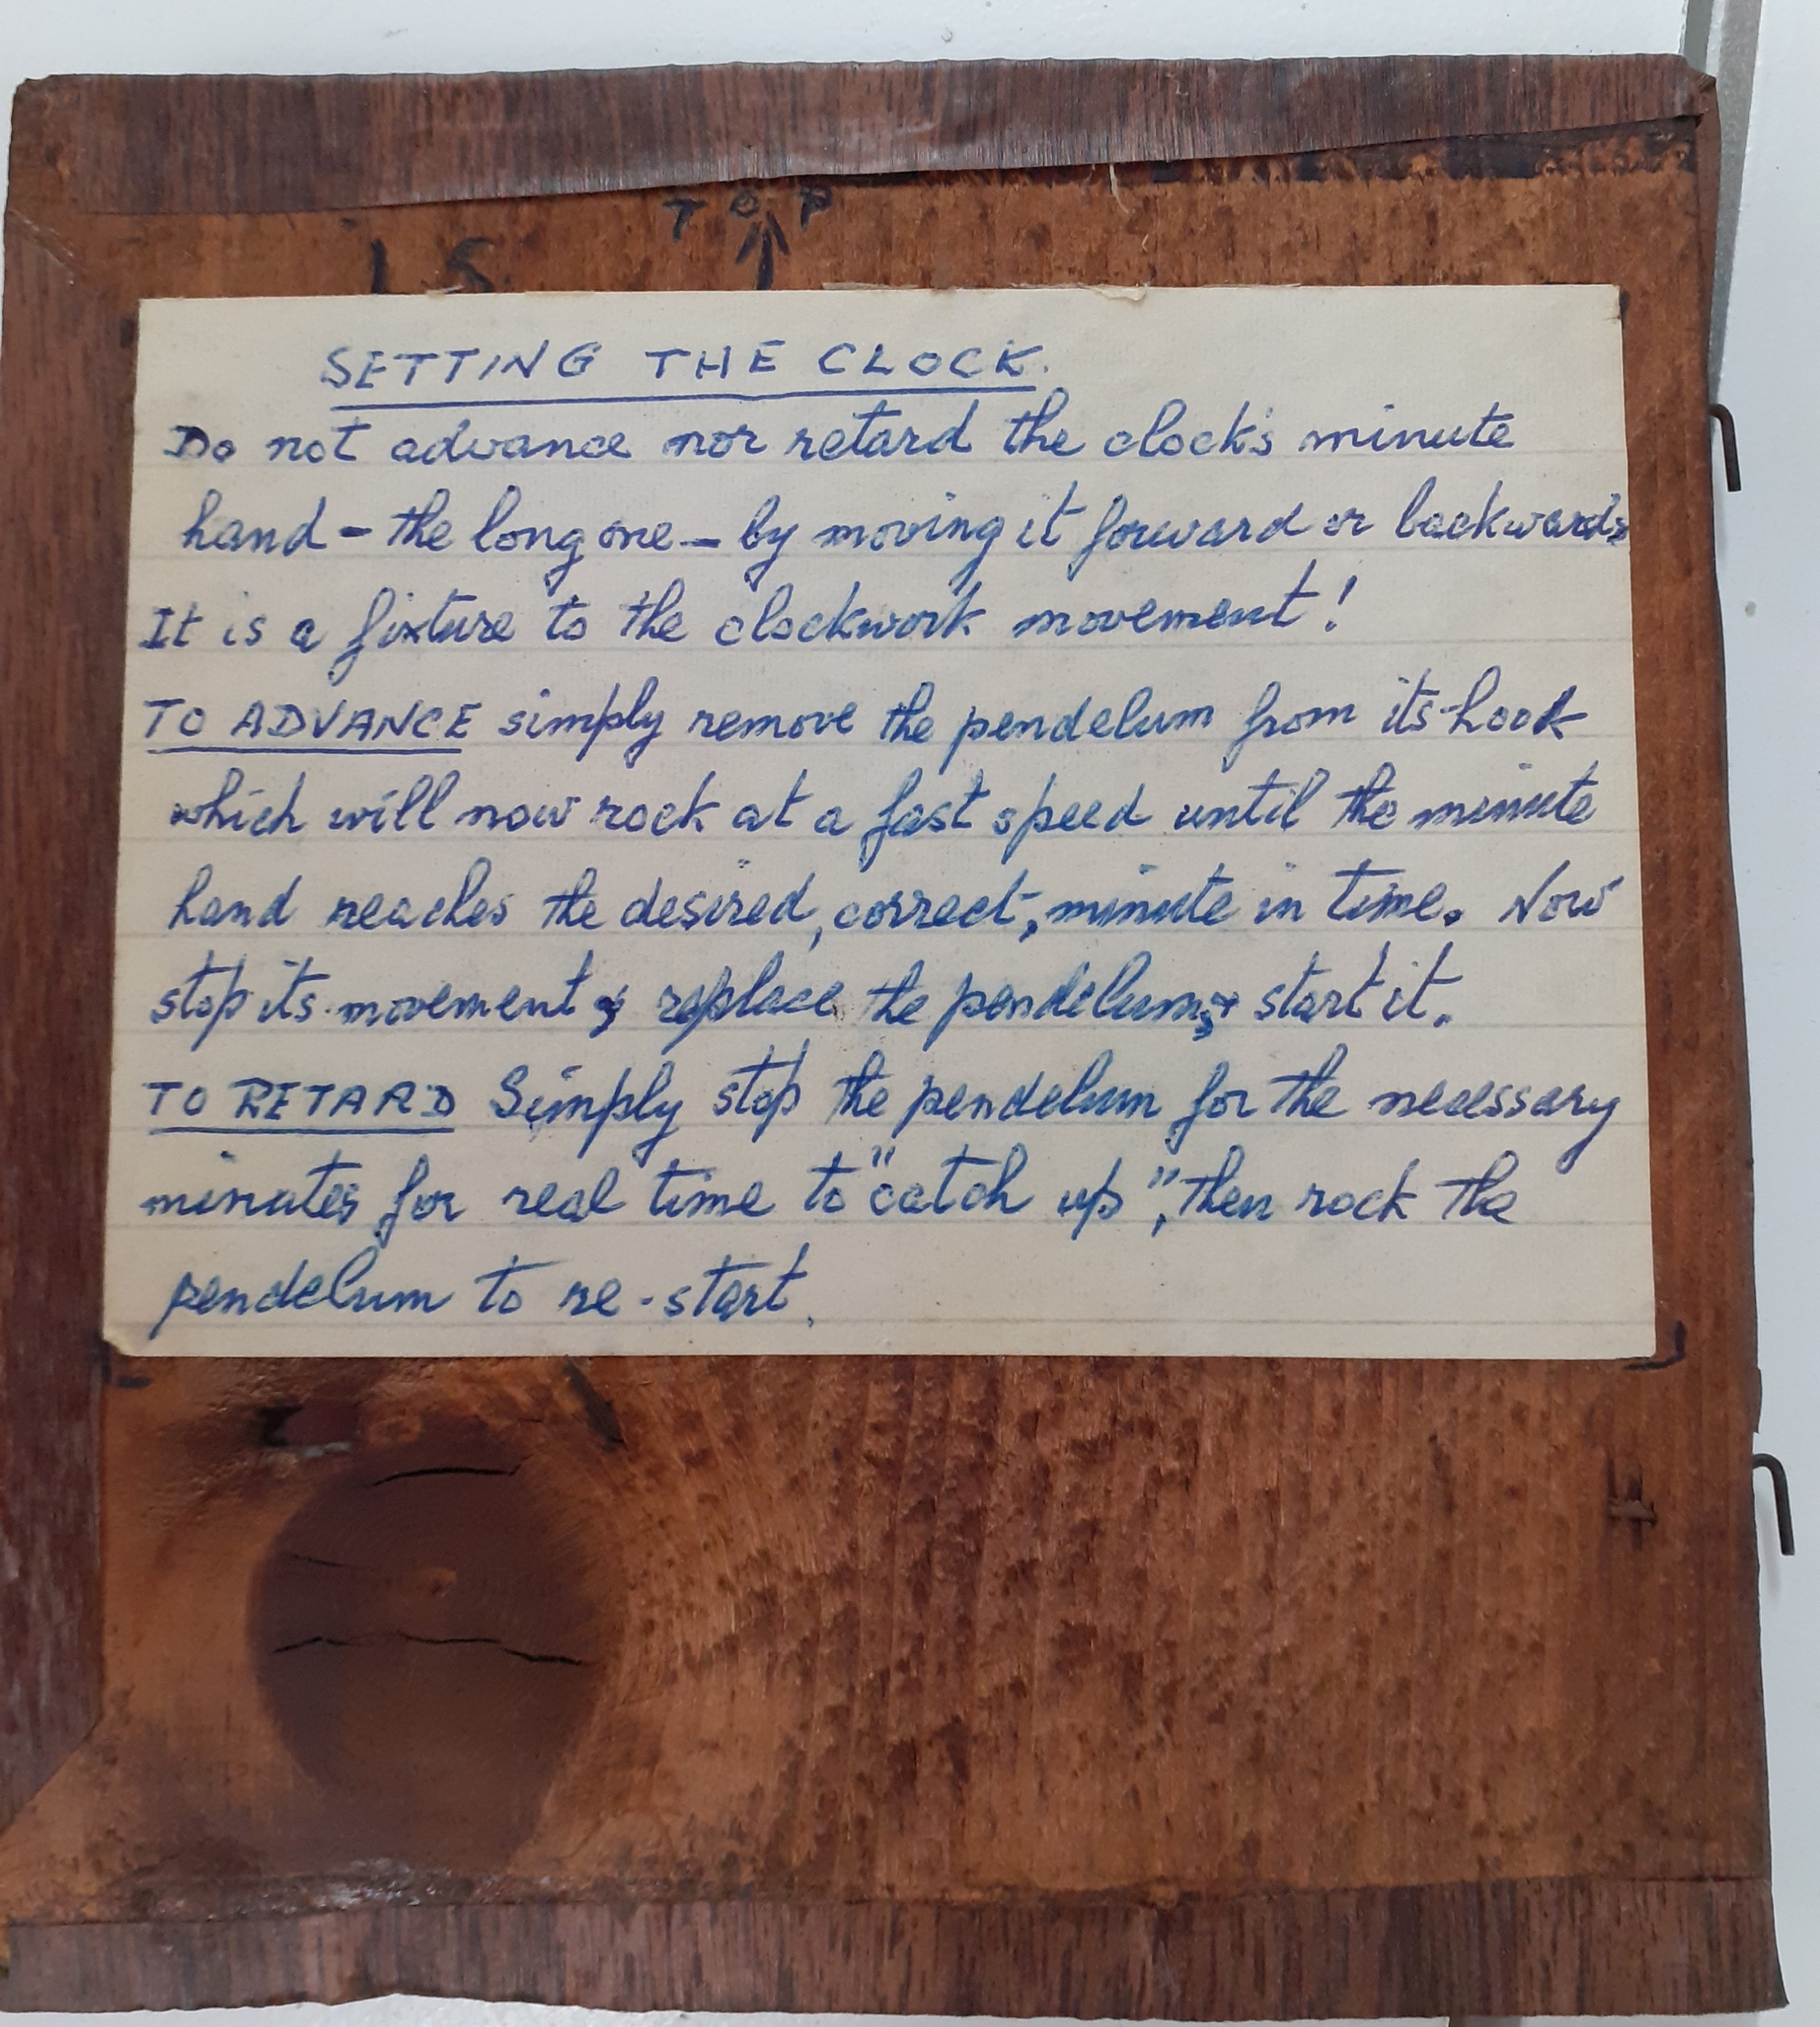 TOP
SETTING THE CLOCK.
Do not advance nor retard the clock's minute
hand - the long one - by moving it forward or backwards
It is a fixture to the clockwork movement!
TO ADVANCE simply remove the pendelum from its hook
which will now rock at a fast speed until the minute
hand reaches the desired, correct, minute in time. Now
stop its movement & replace the pendelum, & start it.
TO RETARD Simply stop the pendelum for the necessary
minutes for real time to "catch up", then rock the
pendelum to re-start.